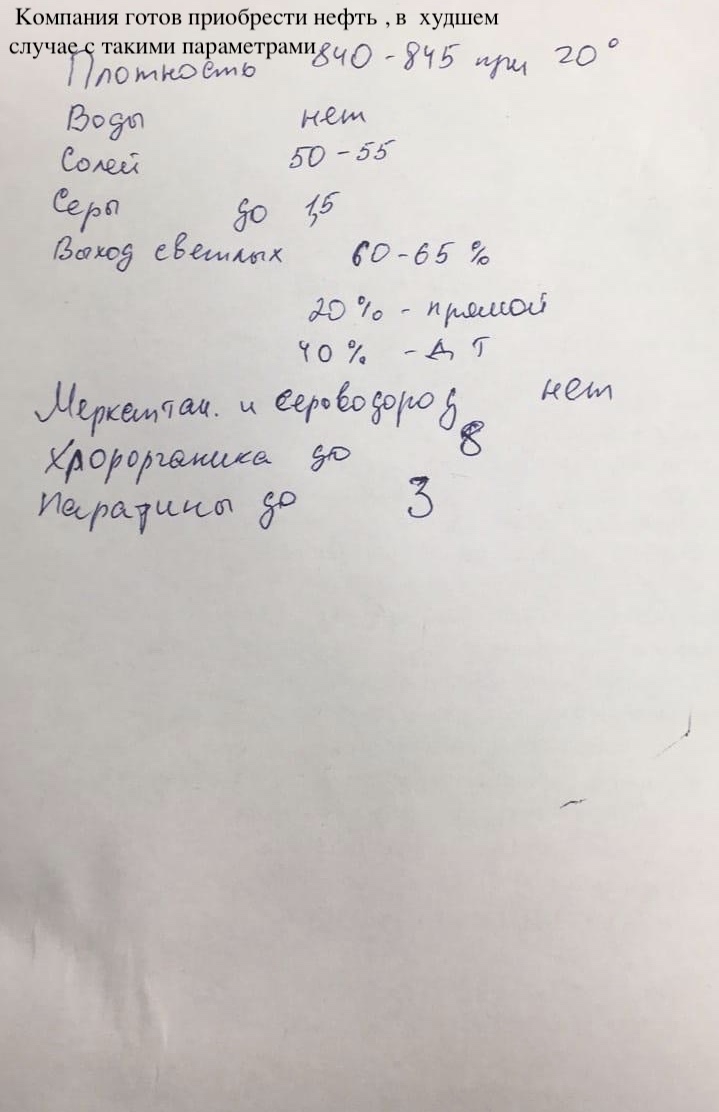 Компания готов приобрести нефть , в худшем
случае с такими параметрами
Плотность 840-845 при 20°
Воды нет
Солей 50-55
Серы до 1,5
Выход светлых 60-65 %
20% - прямой
40% - ДТ
Меркаптан. и сероводород нет
Хлорорганика до 8
Парафины до 3